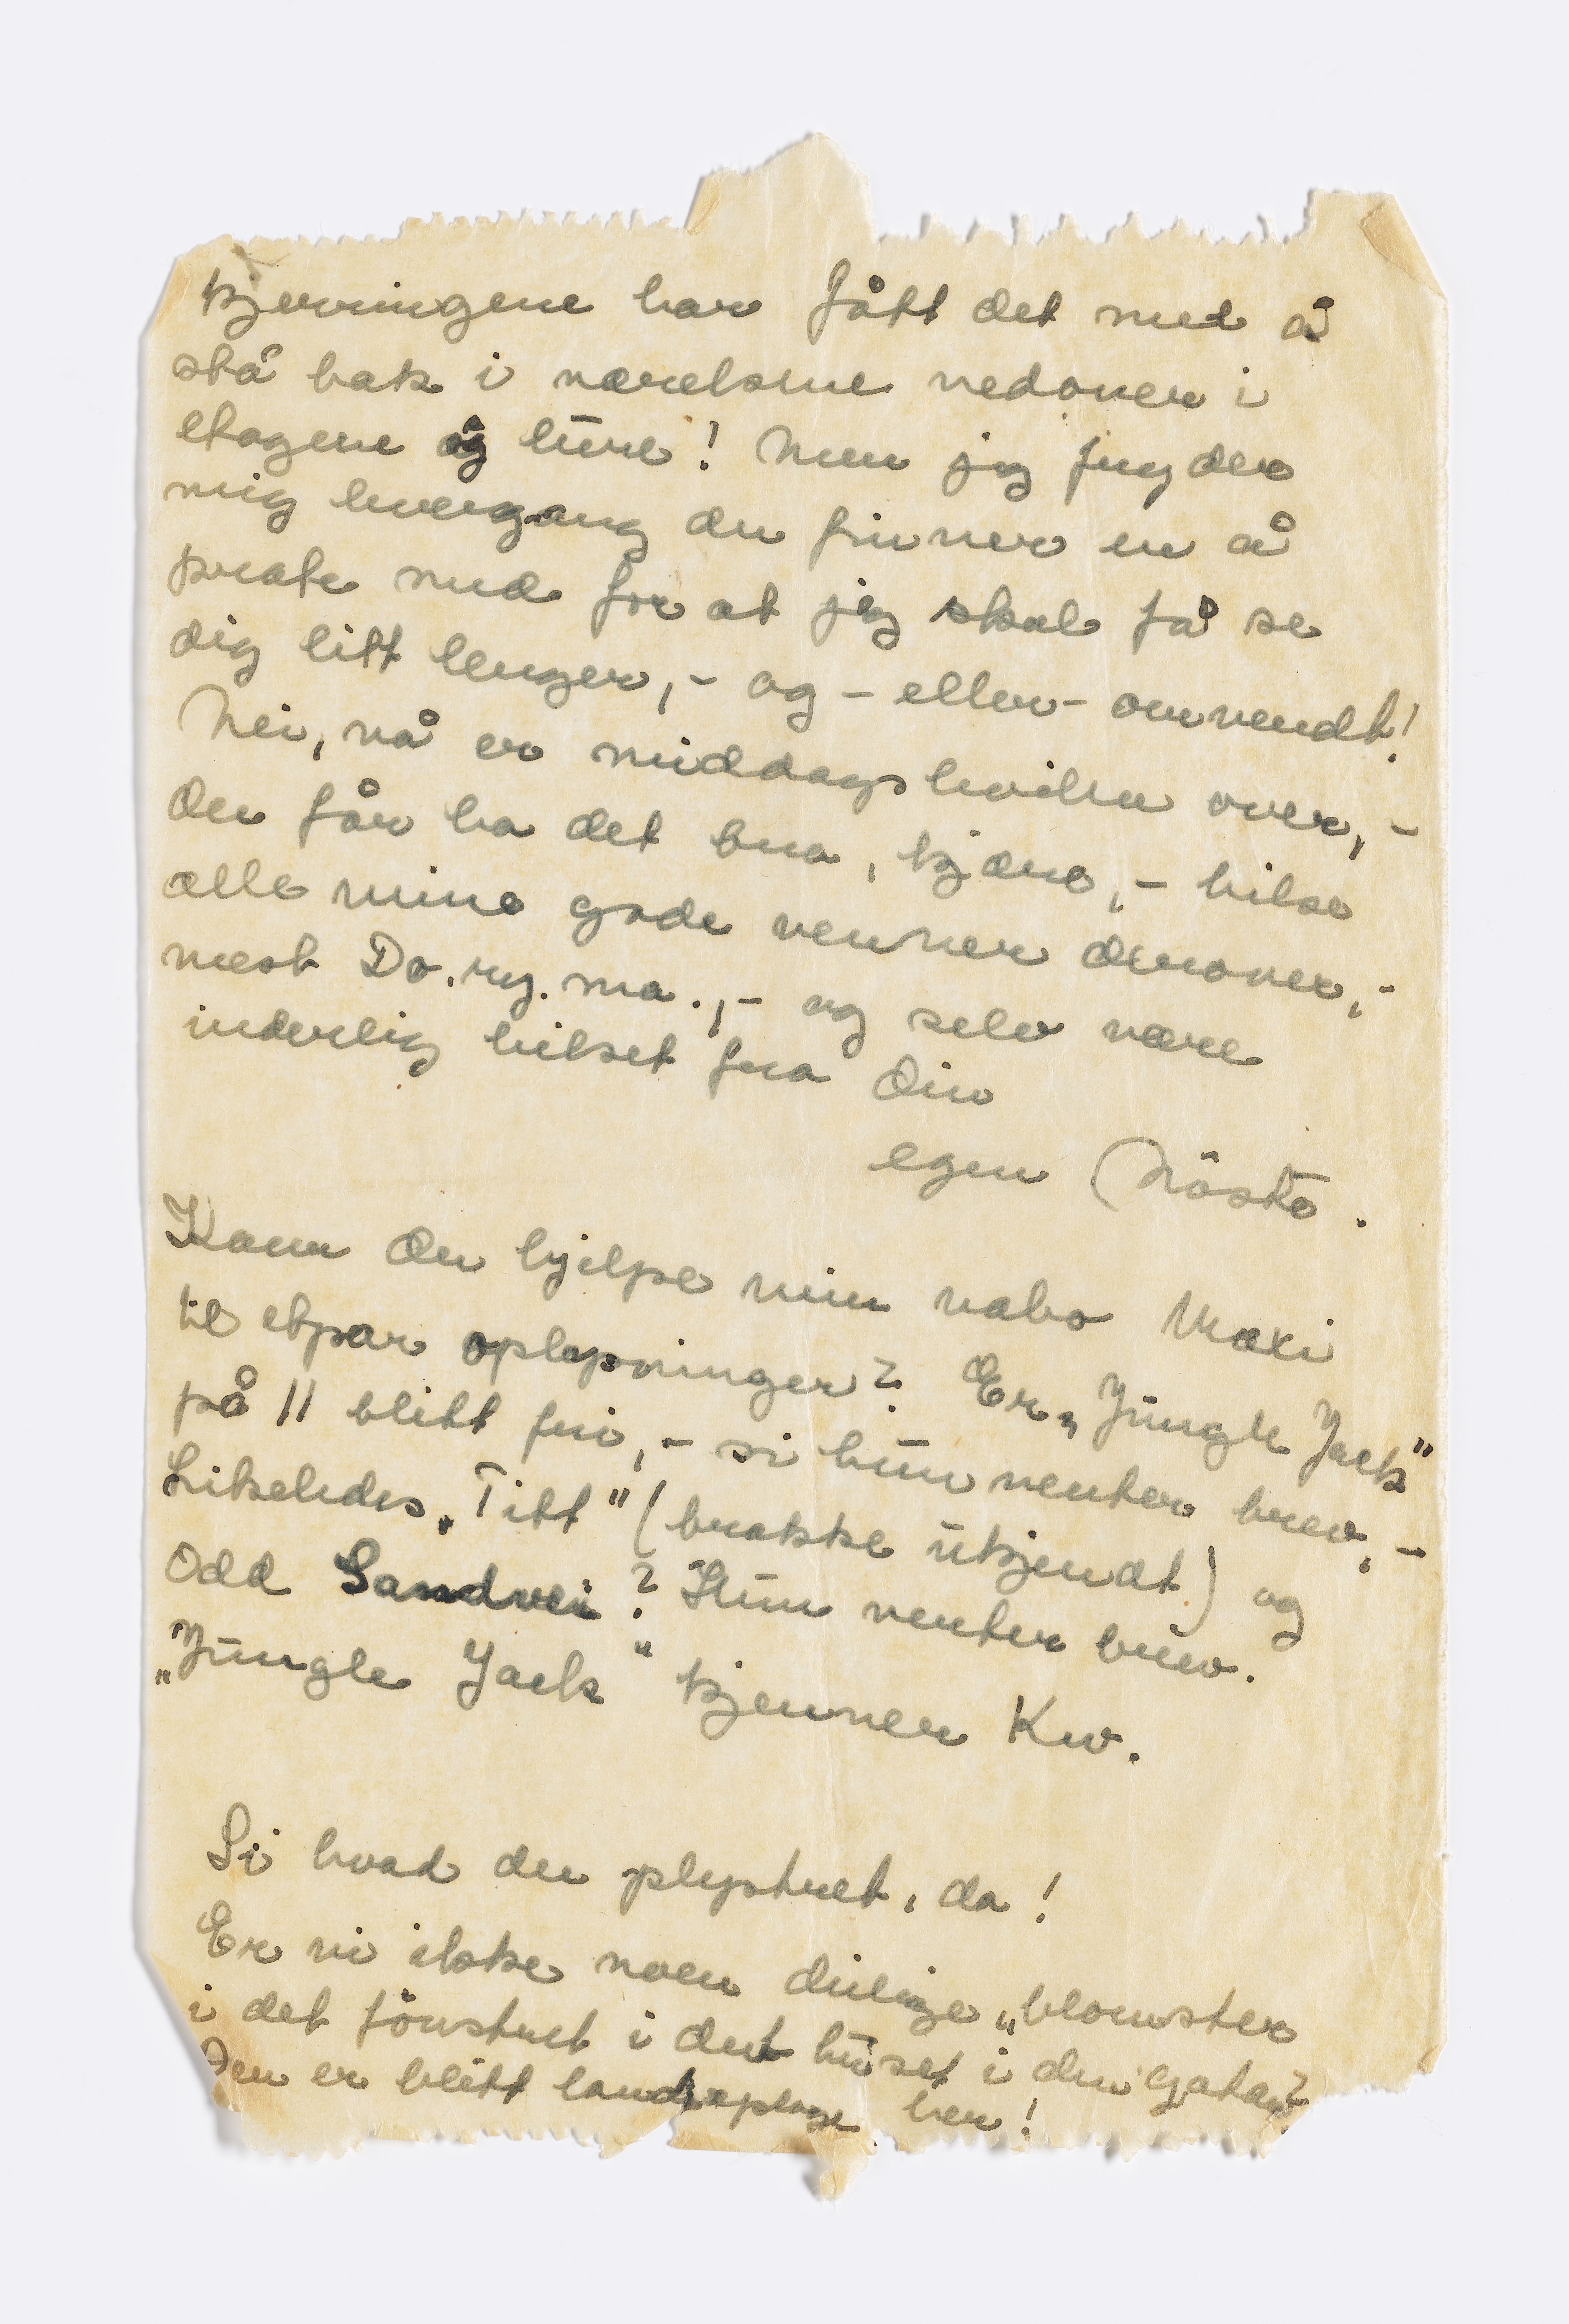 kjerringene har fått det med å
stå bak i værelsene nedover i
etagene og lure! Men jeg fryder
mig hvergang du finner en å
prate med for at jeg skal få se
dig litt lenger,- og - eller - omvendt!
Nei, nå er middagshvilen over,-
du får ha det bra, kjære,- hilse
alle mine gode venner derover,-
mest Do. ry. ma.,- og selv være
inderlig hilset fra Din
egen Nøste.
Kann du hjelpe min nabo Maxi
til etpar oplysninger? Er „Jungle Jack"
på 11 blitt fri,- si hun venter brev,-
Likeledes „Titt" (brakke ukjendt) og
Odd Sandvei? Hun venter brev.
„Jungle Jack" kjenner Kw.
Si hvad du plystret, da!
Er vi ikke noen deilige „blomster
i det fönstret i det huset i den gatan"?
Den er blitt landeplage her!